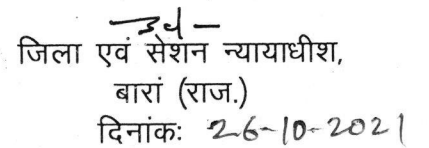 जिला एवं सेशन न्यायाधीश,
बारां (राज.)
दिनांकः 26-10-2021